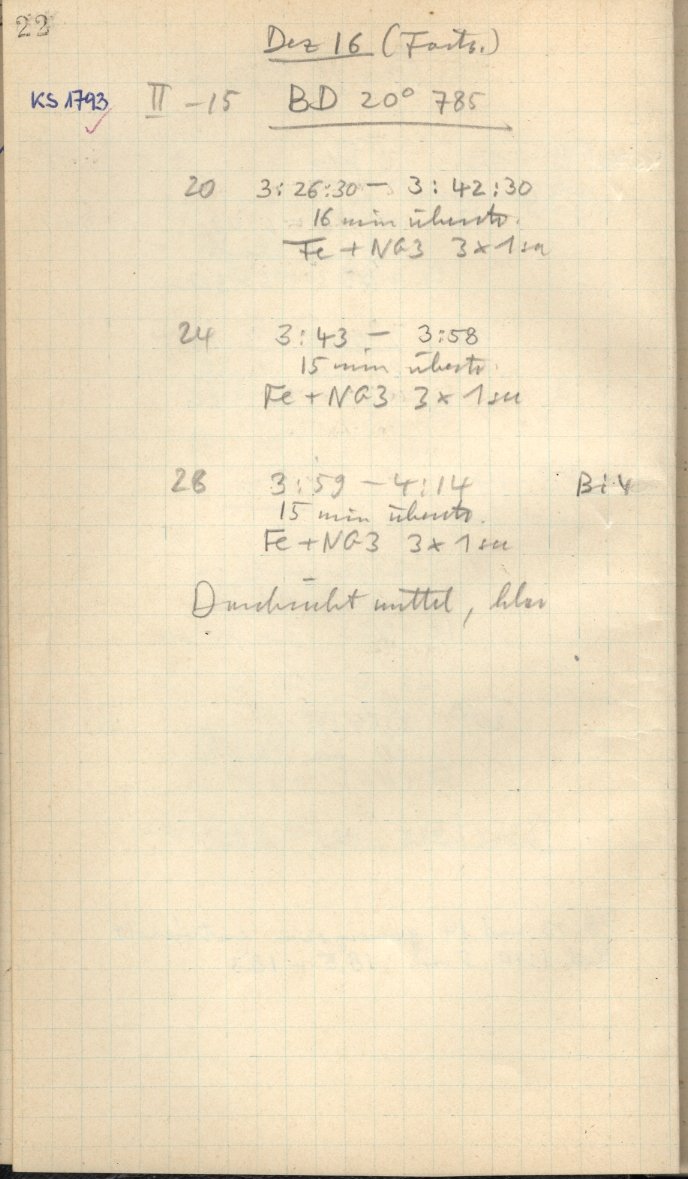 22
Dez 16 (Forts.)
KS 1793 II - 15 BD 20° 785
20 3:26:30 - 3:42:30
16 min überstr.
Fe + NG3 3 x 1 sec
24 3:43 - 3:58
15 min überstr.
Fe + NG3 3 x 1 sec
28 3:59 - 4:14 Bi 4
15 min überstr.
Fe + NG3 3 x 1 sec
Durchsicht mittel, klar